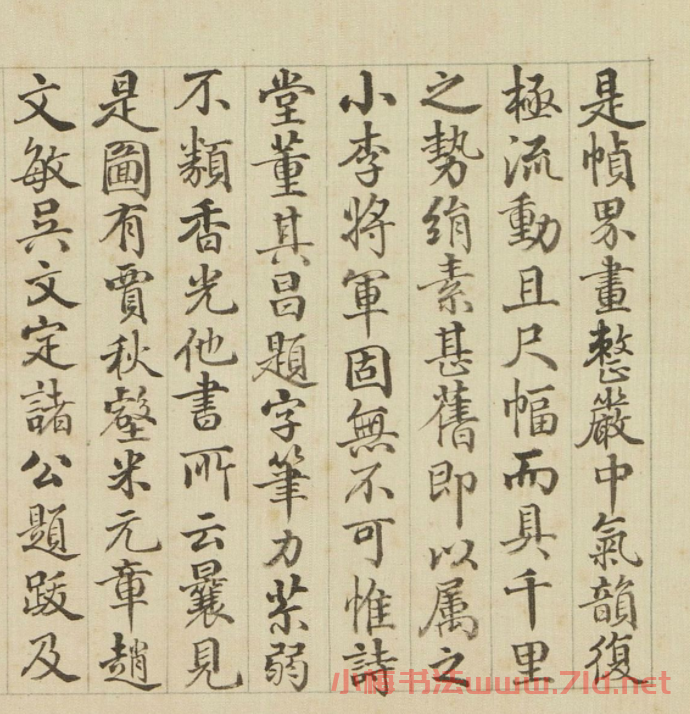 是幀界畫整嚴中氣韻復
極流動且尺幅而具千里
之勢絹素甚舊即以属之
小李將軍固無不可惟詩
堂董其昌題字筆力茶弱
不類香光他書所云曩見
是圖有賈秋壑米元章趙
文敏吳文定諸公題跋及
小梅书法www.7ld.net